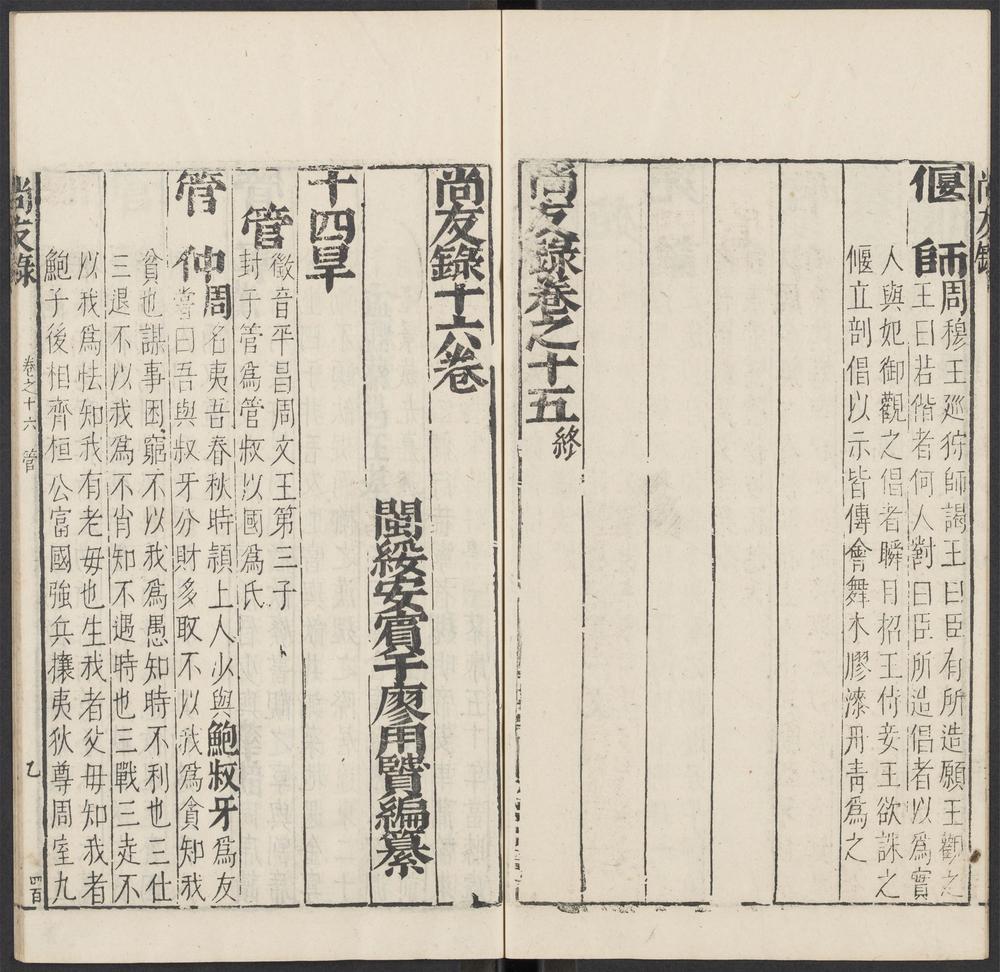 尚友錄
偃師周穆王廵狩師謁王曰臣有所造願王觀之
王曰若偕者何人對曰臣所造倡者以爲實
人與妃御觀之倡者瞬目招王侍妾王欲誅之
偃立剖倡以示皆傳會舞木膠漆丹青爲之
尚友錄卷之十五終
尚友錄十六卷
閩綏安賓于廖用賢編纂
十四旱
管徵音平昌周文王第三子
封于管爲管叔以國爲氏
管仲周名夷吾春秋時潁上人少與鮑叔牙爲友
嘗曰吾與叔牙分財多取不以我爲貪知我
貧也謀事困窮不以我爲愚知時不利也三仕
三退不以我爲不肖知不遇時也三戰三走不
以我爲怯知我有老毋也生我者父毋知我者
鮑子後相齊桓公富國強兵攘夷狄尊周室九
尚友錄 卷之十六 管 乙 四百